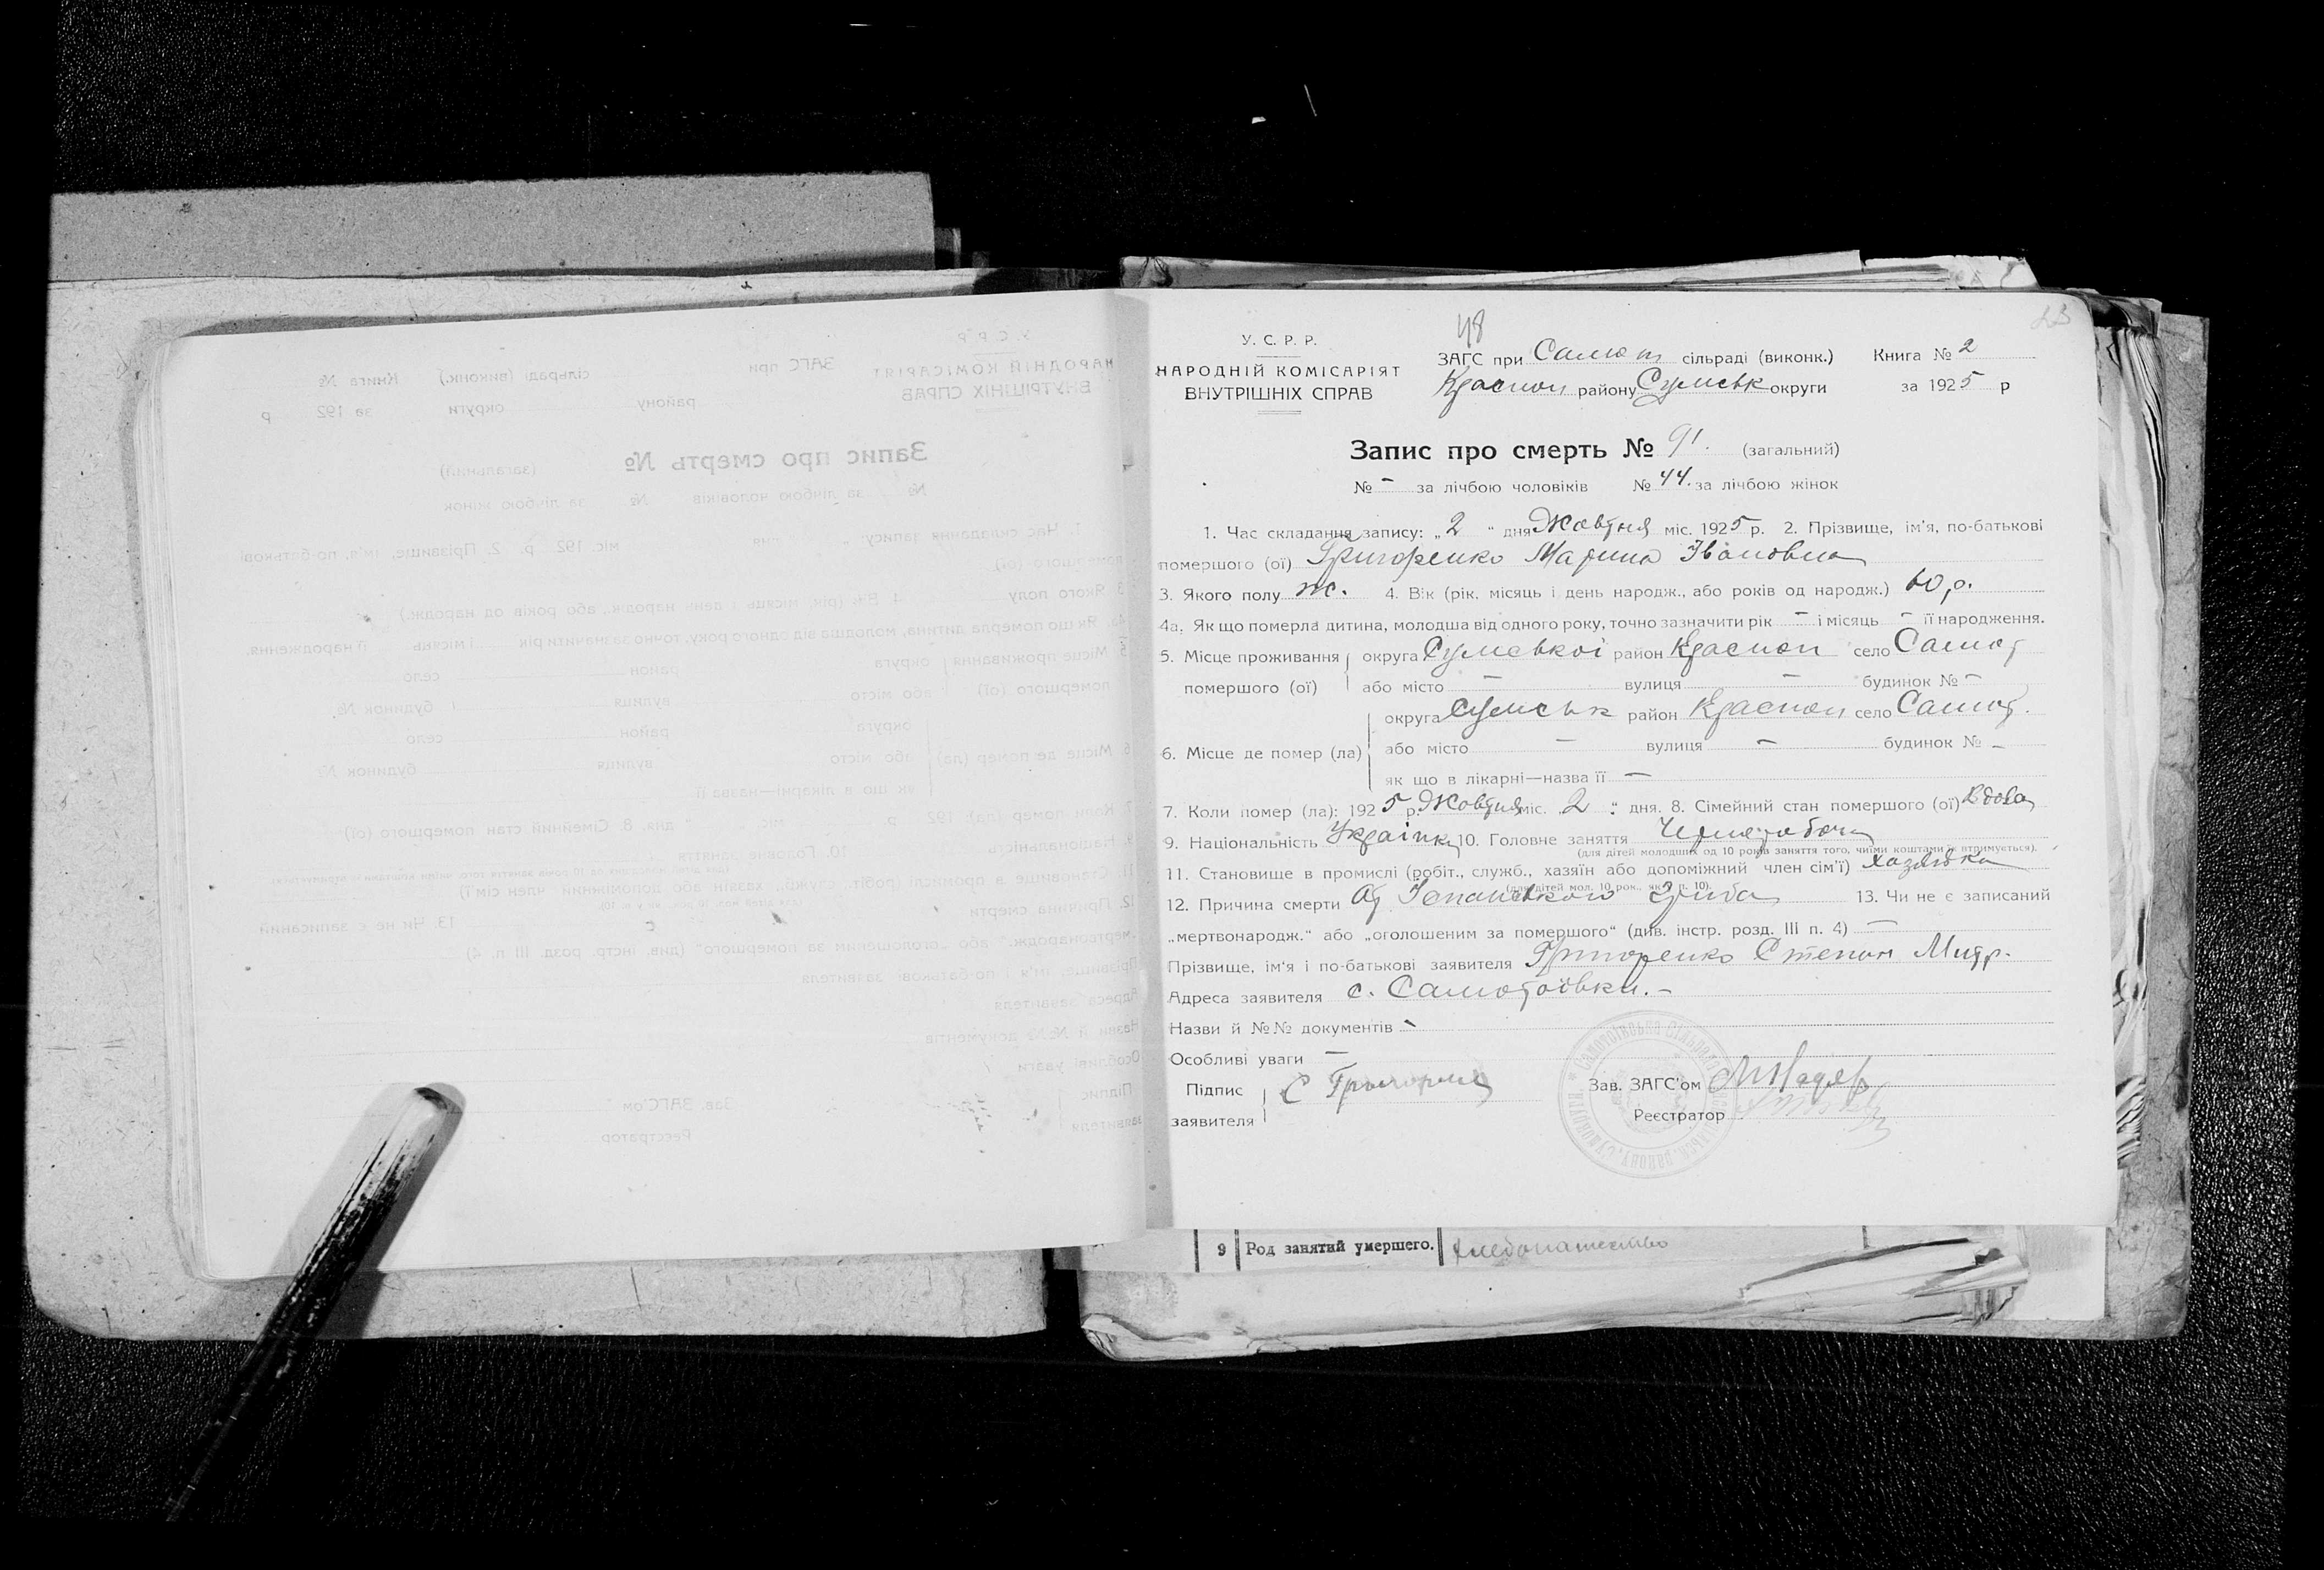 48
23
У. С. Р. Р.
НАРОДНІЙ КОМІСАРІЯТ
ВНУТРІШНІХ СПРАВ
ЗАГС при Самот сільраді (виконк.) Книга № 2
Краспол району Сумськ округи за 1925 р
Запис про смерть № 91. (загальний)
№ – за лічбою чоловіків № 44. за лічбою жінок
1. Час складання запису: „2 “ дня Жовтня міс. 1925 р. 2. Прізвище, ім'я, по-батькові
помершого (ої) Григоренко Марина Івановна
3. Якого полу ж. 4. Вік (рік, місяць і день народж., або років од народж.) 60 р.
4а. Як що померла дитина, молодша від одного року, точно зазначити рік – і місяць – її народження.
5. Місце проживання округа Сумської район Краспол село Самот
помершого (ої) або місто – вулиця – будинок № –
округа Сумськ район Краспол село Самот.
6. Місце де помер (ла) або місто – вулиця – будинок № –
як що в лікарні—назва її –
7. Коли помер (ла): 1925 р. Жовтня міс. „2 “ дня. 8. Сімейний стан помершого (ої) Вдова
9. Національність Українка 10. Головне заняття
(для дітей молодших од 10 років заняття того, чиїми коштами втримується).
11. Становище в промислі (робіт., служб., хазяїн або допоміжний член сім'ї) хазяйка
(для дітей мол. 10 рок., як у п. 10).
12. Причина смерти От Іспанського гриба 13. Чи не є записаний
„мертвонародж.“ або „оголошеним за помершого“ (див. інстр. розд. III п. 4) –
Прізвище, ім'я і по-батькові заявителя Григоренко Степан Митр.
Адреса заявителя с. Самотоївки. –
Назви й №№ документів –
Особливі уваги –
Підпис С Григорен Зав. ЗАГС'ом
заявителя Реєстратор
9 Род занятий умершего. хлебопашество